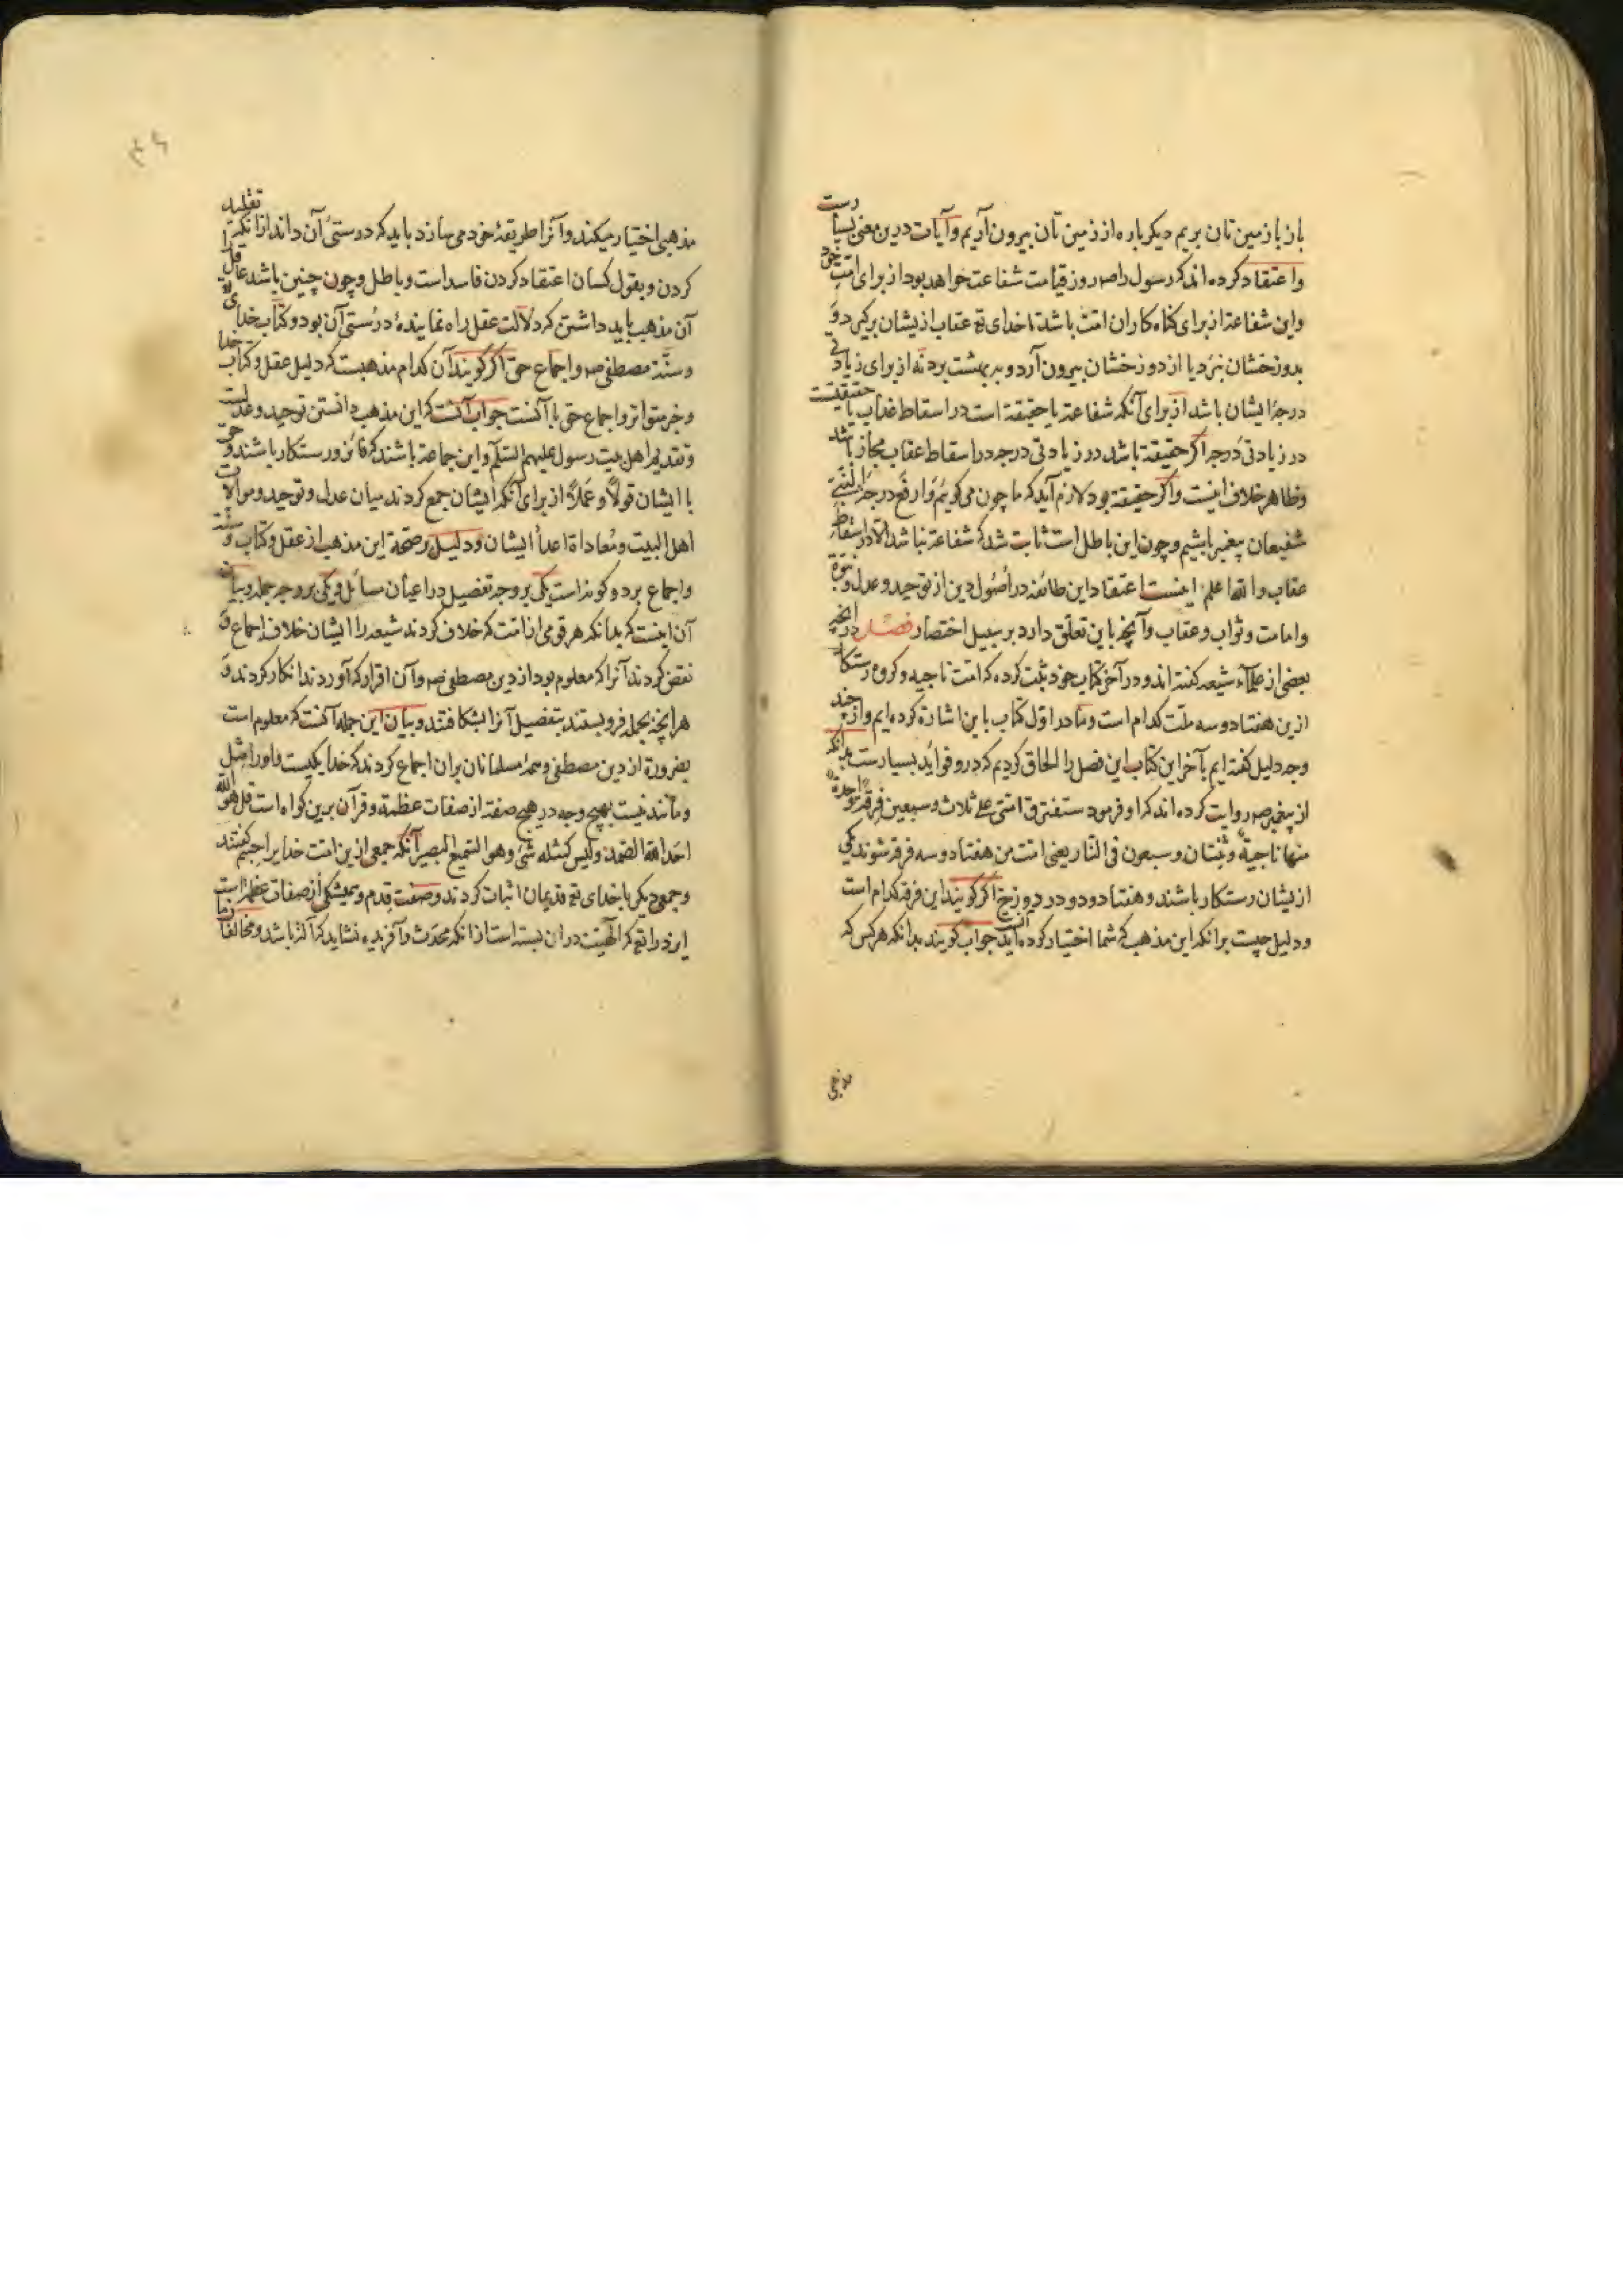 باز بازمین تان بریم دیکر باره از زمین تان بیرون آریم و آیات درین معنی بسیا رست
و اعتقاد کرده اند که رسول را صم روز قیامت شفاعت خواهد بود از برای امت خود
و این شفاعة از برای کناه کاران امت باشد تا خدای تع عقاب از یشان برکیرد و
بدوزخشان نبرد یا از دوزخشان بیرون آرد و ببهشت برد نه از برای زیادتی
درجۀ ایشان باشد از برای آنکه شفاعة یا حقیقة است در اسقاط عذاب یا حقیقتست
در زیادتی درجه اکر حقیقة باشد در زیادتی درجه در اسقاط عقاب مجاز باشد
و ظاهر خلاف اینست و اکر حقیقة بود لازم آید که ما چون می کویم و ارفع درجة النبی
شفیعان پیغمبر باشیم و چون این باطل است ثابت شد که شفاعة نباشد الا در اسقاط
عقاب و الله اعلم اینست اعتقاد این طائفه در اصول دین از توحید و عدل و نبوة
و امامت و ثواب و عقاب و آنچه باین تعلق دارد بر سبیل اختصار فصل در آنچه
بعضی از علماء شیعه کفته اند و در آخر کتاب خود ثبت کرده که امت ناجیه و کروه رستکا
ازین هفتاد و سه ملت کدام است و ما در اول کتاب باین اشارة کرده ایم و از چند
وجه دلیل کفته ایم بآخر این کتاب این فصل را الحاق کردیم که درو فواید بسیارست بدانکه
از پیغمبر صم روایت کرده اند که او فرمود ستفترق امتی علی ثلاث و سبعین فرقة واحدة
منها ناجیة و ثنتان و سبعون فی النار یعنی امت من هفتاد و سه فرقه شوند یکی
از یشان رستکار باشند و هفتاد و دو در دوزخ اکر کویند این فرقه کدام است
و دلیل چیست برانکه این مذهب که شما اختیار کرده اید آنست جواب کویند بدانکه هر کس که
مذهبی اختیار میکند و آنرا طریقۀ خود می سازد باید که درستی آن داند از انکه تقلید
کردن و بقول کسان اعتقاد کردن فاسد است و باطل و چون چنین باشد عاقل را
آن مذهب باید داشتن که دلالت عقل راه نمایندۀ درستی آن بود و کتاب خدای
و سنة مصطفی صم و اجماع حق اکر کویند آن کدام مذهبست که دلیل عقل و کتاب خدا
و خبر متواتر و اجماع حق با آنست جواب آنست که این مذهب دانستن توحید و عدلست
و تقدیم اهل بیت رسول علیهم السلم و این جماعة باشند که فائز و رستکار باشند و حق
با ایشان قولاً و عملاً از برای آنکه ایشان جمع کردند میان عدل و توحید و موالات
اهل البیت و معاداة اعدأ ایشان و دلیل بر صحة این مذهب از عقل و کتاب و سنة
و اجماع بر دو کونه است یکی بر وجه تفصیل در اعیان مسائل و یکی بر وجه جمله و بیان
آن اینست که بدانکه هر قومی از امت که خلاف کردند شیعه را ایشان خلاف اجماع و
نقض کردند آنرا که معلوم بود از دین مصطفی صم و آن اقرار که آوردند انکار کردند و
هر آنچه بجمله فرو بستند بتفصیل آنرا بشکافتند و بیان این جمله آنست که معلوم است
بضرورة از دین مصطفی و همه مسلمانان بران اجماع کردند که خدا یکیست و او را مثل
و مانند نیست بهیچ وجه در هیچ صفة از صفات عظمة و قرآن برین کواه است قل هو الله
احد الله الصمد و لیس کمثله شئ و هو السمیع البصیر آنکه جمعی ازین امت خدا را جسم کفتند
و جمعی دیکر با خدای تع قدیمان اثبات کردند و صفت قدم و همیشکی از صفات عظمة است
ایزد را تع که الهیت دران بسته است از انکه محدث و آفریده نشاید که اله باشد و مخالفان ما